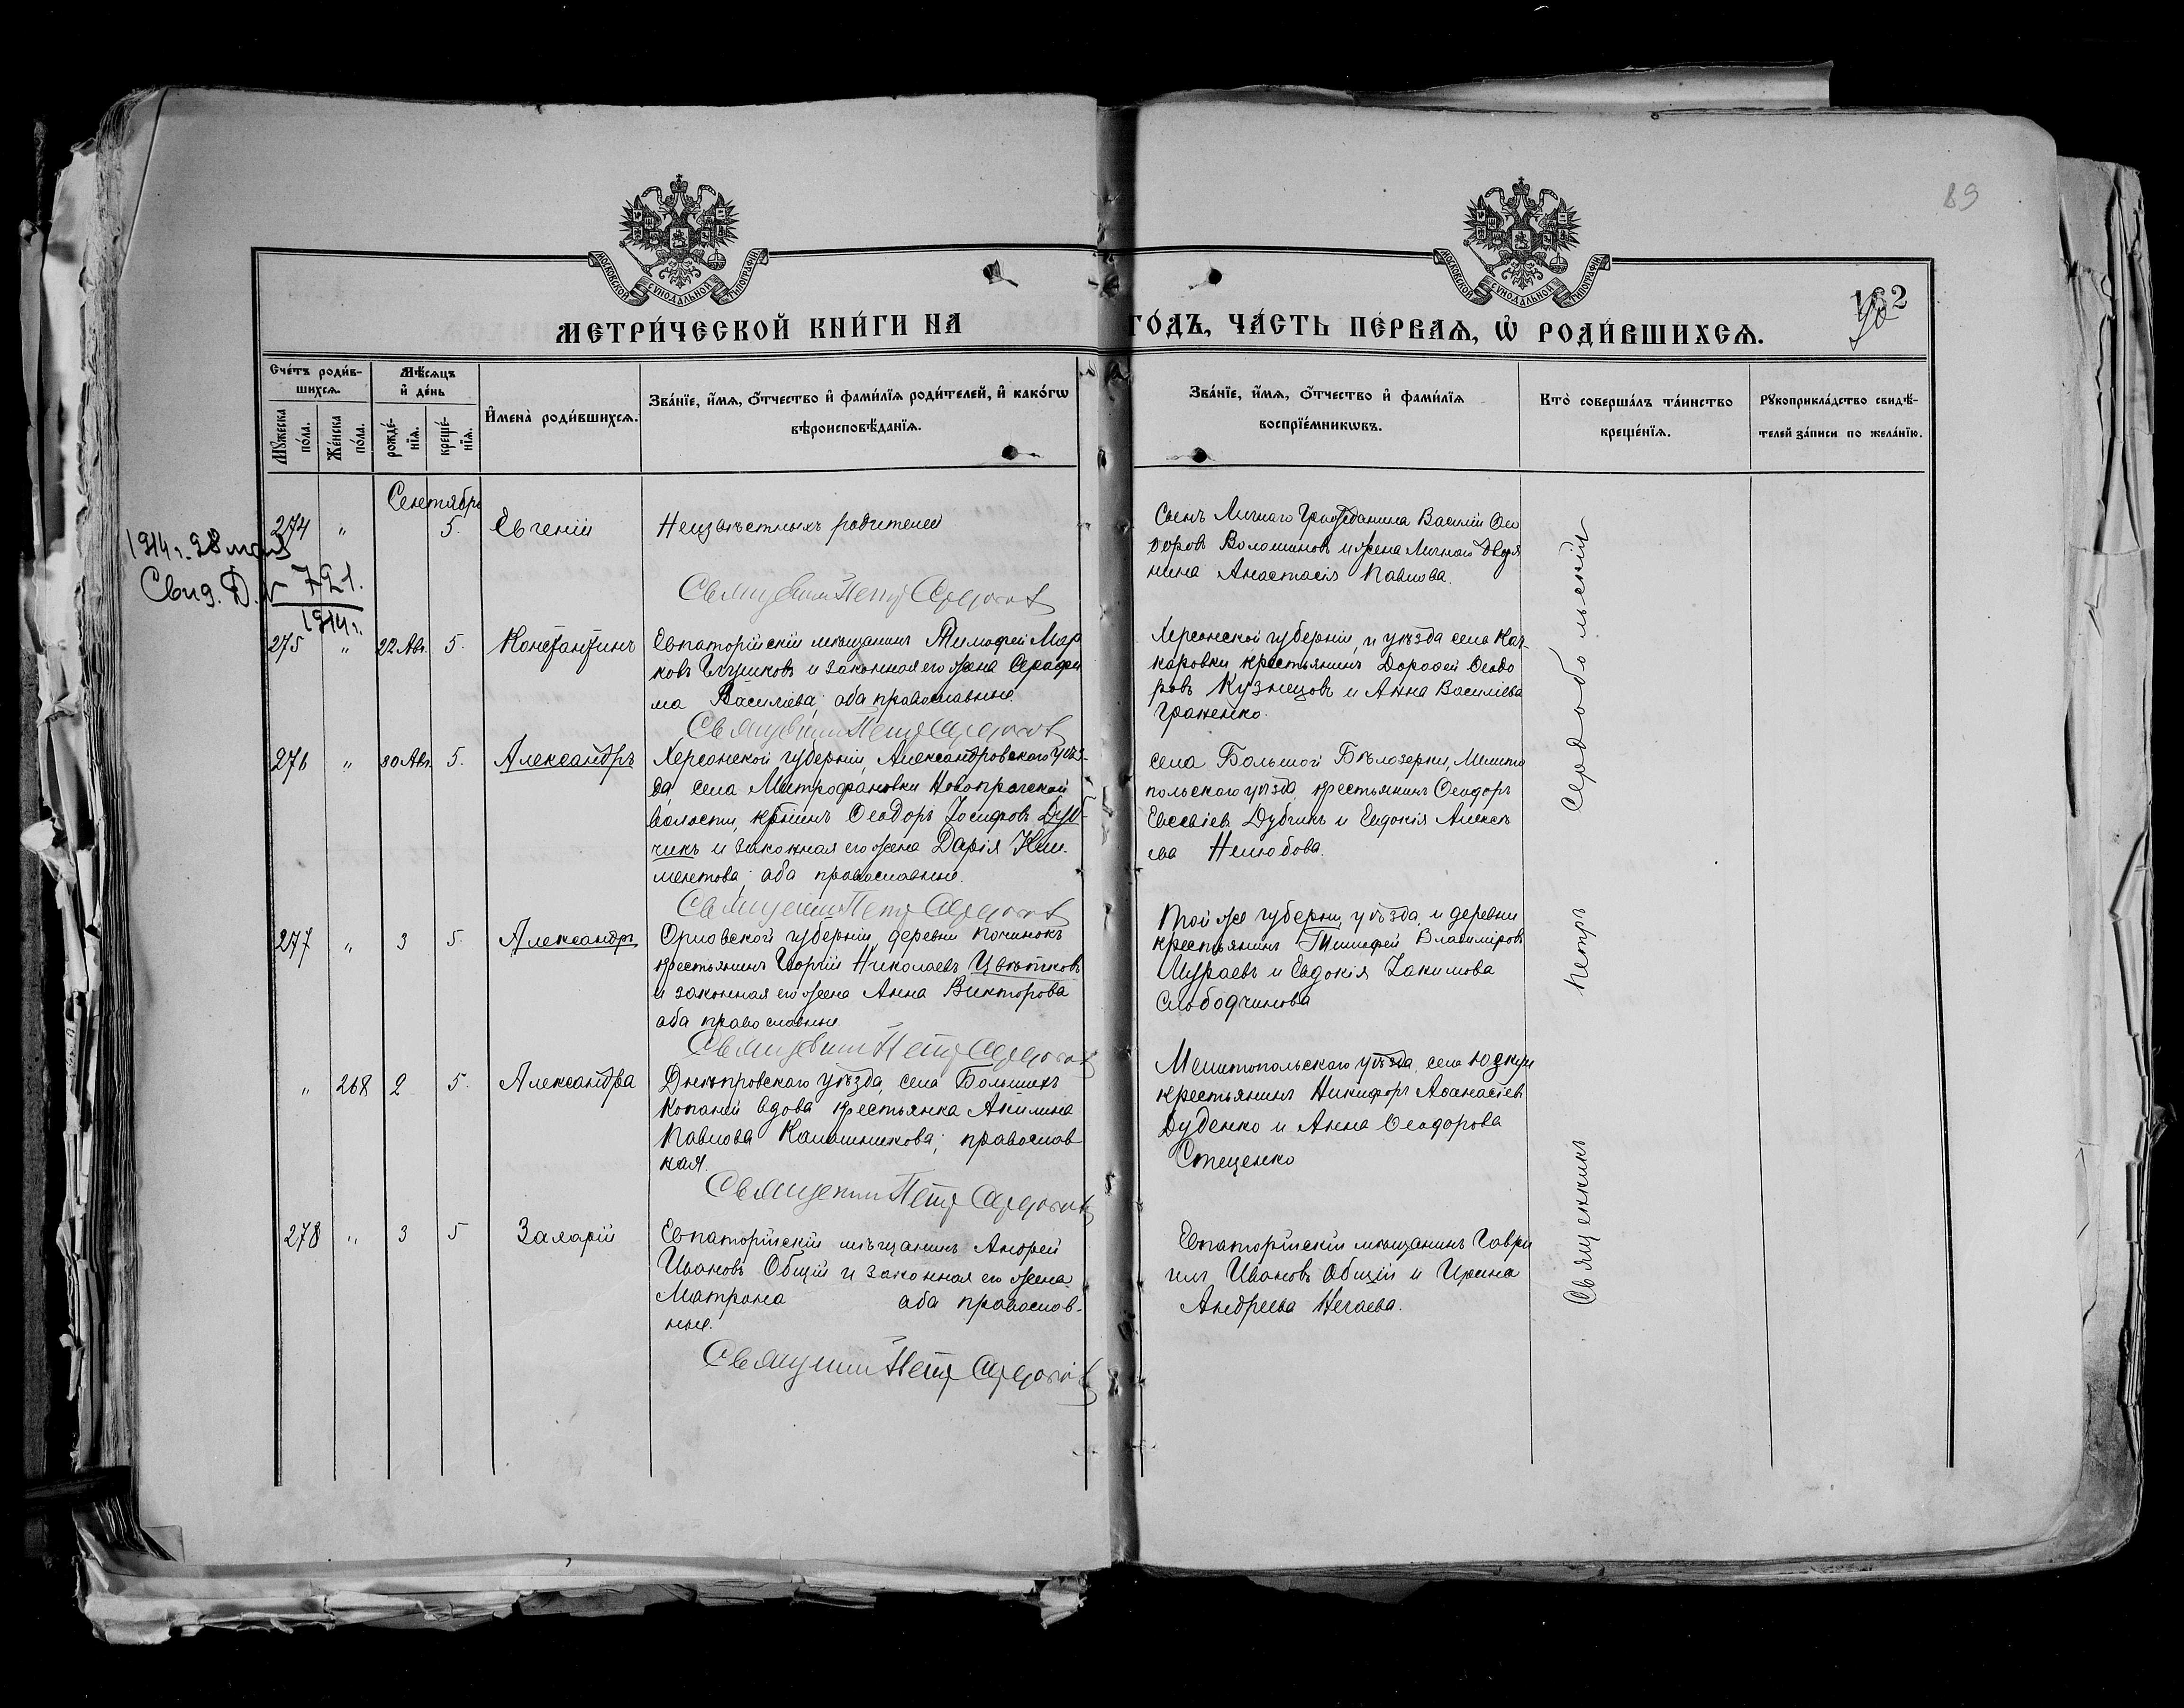 89
162
МОСКОВСКОЙ СѴНОДАЛЬНОЙ ТИПОГРАФІИ
МОСКОВСКОЙ СѴНОДАЛЬНОЙ ТИПОГРАФІИ
МЕТРИ́ЧЕСКОЙ КНИ́ГИ НА ГО́ДЪ, ЧА́СТЬ ПЕ́РВАѦ, Ѡ҆ РОДИ́ВШИХСѦ.
Сче́тъ роди́в-
шихсѧ.
Мꙋ́жеска по́ла.
Же́нска по́ла.
Мѣ́сѧцъ
и҆ де́нь
рожде́-
нїѧ.
креще́-
нїѧ.
И҆мена̀ роди́вшихсѧ.
Зва́нїе, и҆́мѧ, ѻ҆́тчество и҆ фами́лїѧ роди́телей, и҆ како́гѡ
вѣроисповѣ́данїѧ.
Зва́нїе, и҆́мѧ, ѻ҆́тчество и҆ фами́лїѧ
воспрїе́мникѡвъ.
Кто̀ соверша́лъ та́инство
креще́нїѧ.
Рꙋкоприкла́дство свидѣ́-
телей за́писи по жела́нїю.
Сентябрь
1914 г. 28 мая
Свид. Д. № 721.
1914 г.
274 " 5. Евгеній
Неизвѣстныхъ родителей
Священникъ Петръ
Сынъ Личнаго Гражданина Василій Ѳео
доровъ Волошиновъ и жена Личнаго Дворя
нина Анастасія Павлова.
275 " 22 Авг. 5. Константинъ
Евпаторійскій мѣщанинъ Тимофей Мар
ковъ и законная его жена Серафи
ма Василіева; оба православные.
Священникъ Петръ
Херсонской губерніи, и уѣзда села Кач-
каровки крестьянинъ Дороѳей Ѳеодо
ровъ Кузнецовъ и Анна Василіева
276 " 30 Авг. 5. Александръ
Херсонской губерніи, Александровскаго уѣз-
да, села Митрофановки Новопражской
волости, кр̃нинъ Ѳеодоръ Іосифовъ Дуб-
чикъ и законная его жена Дарія Кли-
ментова; оба православные.
Священникъ Петръ
села Большой Бѣлозерки, Мелито
польскаго уѣзда крестьянинъ Ѳеодоръ
Евсевіевъ Дубчикъ и Евдокія Алексѣ
ева Нелюбова.
277 " 3 5. Александръ
Орловской губерніи, деревни Починокъ
крестьянинъ Георгій Николаевъ Цвѣтковъ
и законная его жена Анна Викторова
оба православные
Священникъ Петръ
Той же губерни, уѣзда, и деревни
крестьянинъ Тимофей Владиміровъ
Мураевъ и Евдокія Іакимова
Слободчикова
" 268 2 5. Александра
Днѣпровскаго уѣзда, села Большихъ
Копаней вдова крестьянка Акилина
Павлова Калашникова; православ
ная.
Священникъ Петръ
Мелитопольскаго уѣзда, села
крестьянинъ Никифоръ Аѳанасіевъ
Дуденко и Анна Ѳеодорова
Стеценко
278 " 3 5 Захарій
Евпаторійскій мѣщанинъ Андрей
Ивановъ Общій и законная его жена
Матрона оба православ-
ные.
Священникъ Петръ
Евпаторійскій мѣщанинъ Гаврі
илъ Ивановъ Общій и Ирина
Андреева Нечаева.
Священникъ Петръ Сердобольскій